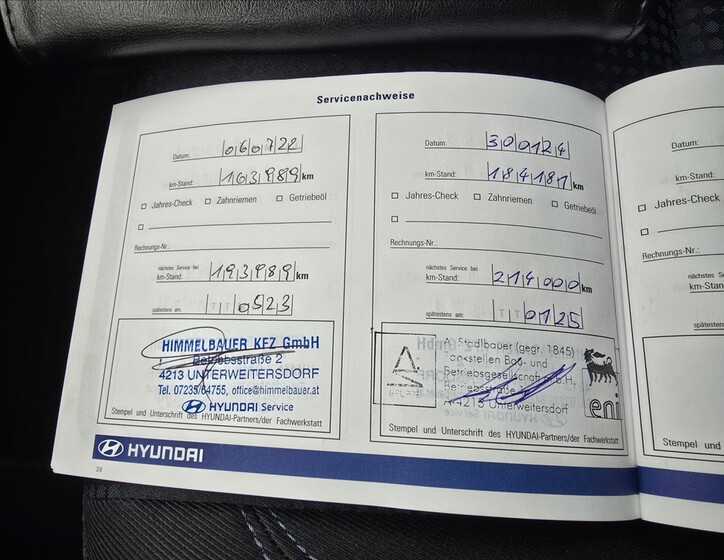 Servicenachweise
Datum: 060722
km-Stand: 163989 km
Jahres-Check Zahnriemen Getriebeöl
Rechnungs-Nr.:
nächstes Service bei
km-Stand: 193989 km
spätestens am: TT0523
HIMMELBAUER KFZ GmbH
Betriebsstraße 2
4213 UNTERWEITERSDORF
Tel. 07235/64755, office@himmelbauer.at
HYUNDAI Service
Stempel und Unterschrift des HYUNDAI-Partners/der Fachwerkstatt
Datum: 300124
km-Stand: 184181 km
Jahres-Check Zahnriemen Getriebeöl
Rechnungs-Nr.:
nächstes Service bei
km-Stand: 214000 km
spätestens am: TT0125
Stadlbauer (gegr. 1845)
Betriebsgesellschaft m.b.H.
Betriebsstraße
A-4213 Unterweitersdorf
eni
Stempel und Unterschrift des HYUNDAI-Partners/der Fachwerkstatt
HYUNDAI
38
Datum:
km-Stand:
Jahres-Check
Rechnungs-Nr.:
nächstes S
km-Stan
spätesten
Stempel und